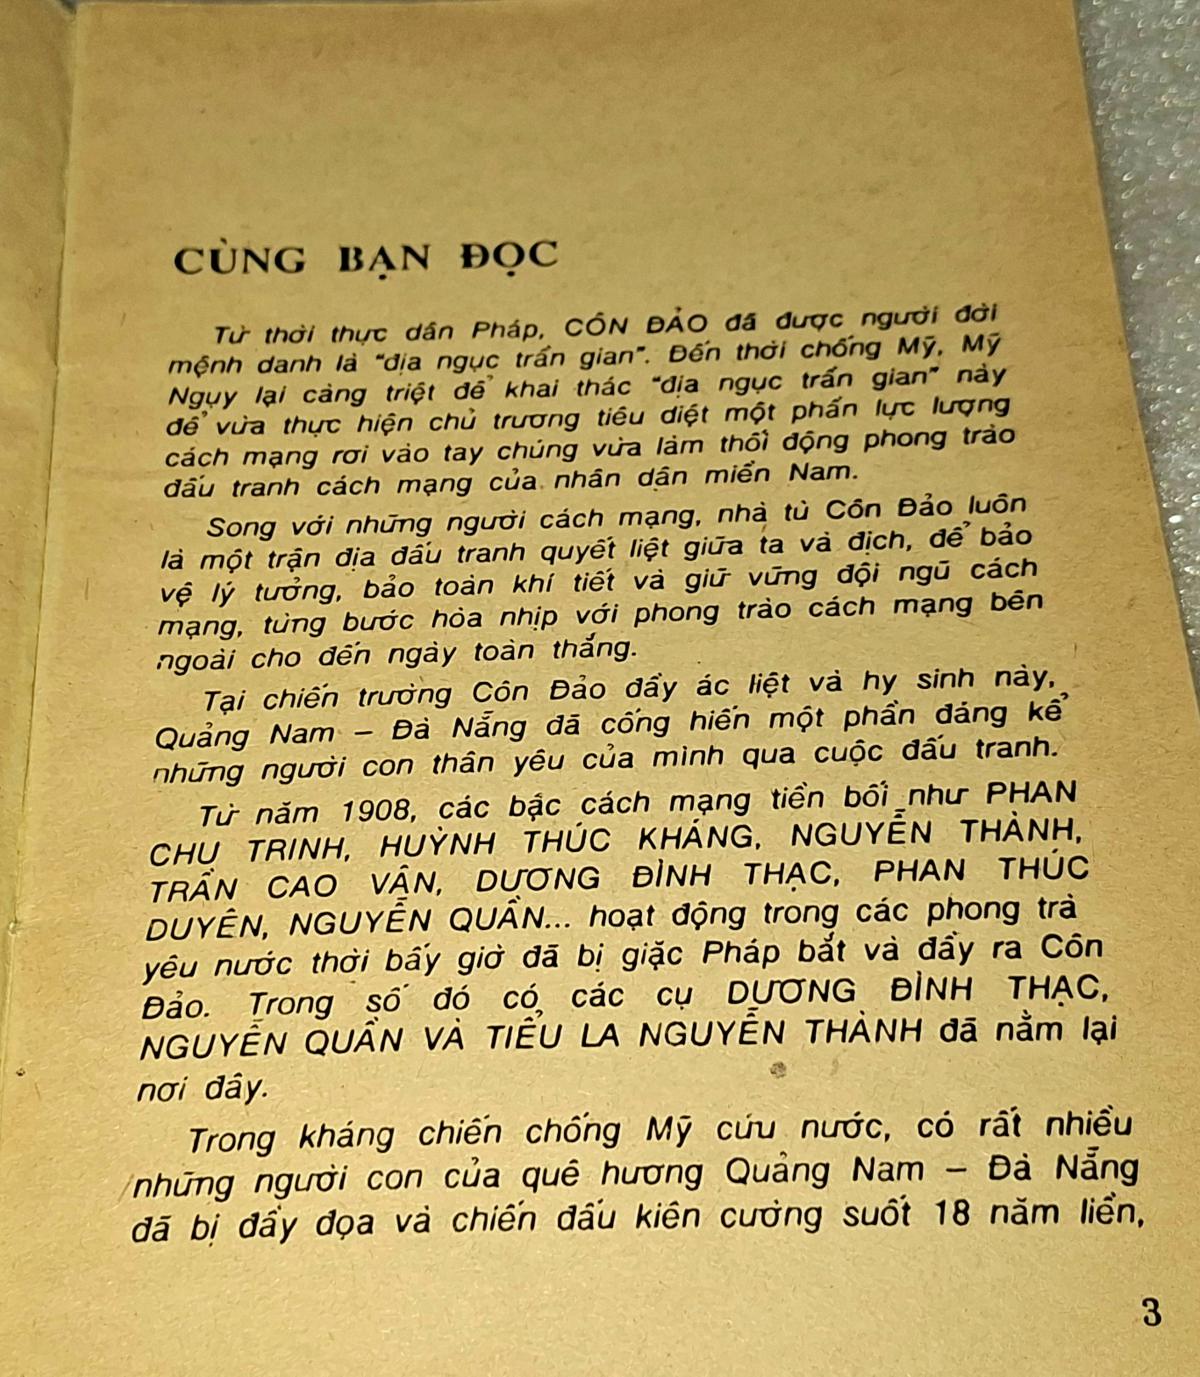 CÙNG BẠN ĐỌC
Từ thời thực dân Pháp, CÔN ĐẢO đã được người đời
mệnh danh là "địa ngục trần gian". Đến thời chống Mỹ, Mỹ
Ngụy lại càng triệt để khai thác "địa ngục trần gian" này
để vừa thực hiện chủ trương tiêu diệt một phần lực lượng
cách mạng rơi vào tay chúng vừa làm thối động phong trào
đấu tranh cách mạng của nhân dân miền Nam.
Song với những người cách mạng, nhà tù Côn Đảo luôn
là một trận địa đấu tranh quyết liệt giữa ta và địch, để bảo
vệ lý tưởng, bảo toàn khí tiết và giữ vững đội ngũ cách
mạng, từng bước hòa nhịp với phong trào cách mạng bên
ngoài cho đến ngày toàn thắng.
Tại chiến trường Côn Đảo đầy ác liệt và hy sinh này,
Quảng Nam – Đà Nẵng đã cống hiến một phần đáng kể
những người con thân yêu của mình qua cuộc đấu tranh.
Từ năm 1908, các bậc cách mạng tiền bối như PHAN
CHU TRINH, HUỲNH THÚC KHÁNG, NGUYỄN THÀNH,
TRẦN CAO VÂN, DƯƠNG ĐÌNH THẠC, PHAN THÚC
DUYÊN, NGUYỄN QUẦN... hoạt động trong các phong trà
yêu nước thời bấy giờ đã bị giặc Pháp bắt và đầy ra Côn
Đảo. Trong số đó có các cụ DƯƠNG ĐÌNH THẠC,
NGUYỄN QUẦN VÀ TIỂU LA NGUYỄN THÀNH đã nằm lại
nơi đây.
Trong kháng chiến chống Mỹ cứu nước, có rất nhiều
những người con của quê hương Quảng Nam – Đà Nẵng
đã bị đầy đọa và chiến đấu kiên cường suốt 18 năm liền,
3